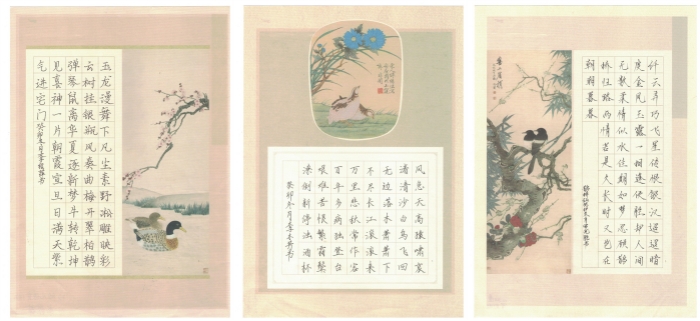 玉龙漫舞下凡尘素野凇雕映彩
云树挂银瓶风奏曲梅开翠柏鹊
弹琴鼠离华夏逐新梦斗转乾坤
见喜神一片朝霞宣旦日满天紫
气进宅门
风急天高猿啸哀
渚清沙白鸟飞回
无边落木萧萧下
不尽长江滚滚来
万里悲秋常作客
百年多病独登台
艰难苦恨繁霜鬓
潦倒新停浊酒杯
纤云弄巧飞星传恨银汉迢迢暗
度金风玉露一相逢便胜却人间
无数柔情似水佳期如梦忍顾鹊
桥归路两情若是久长时又岂在
朝朝暮暮